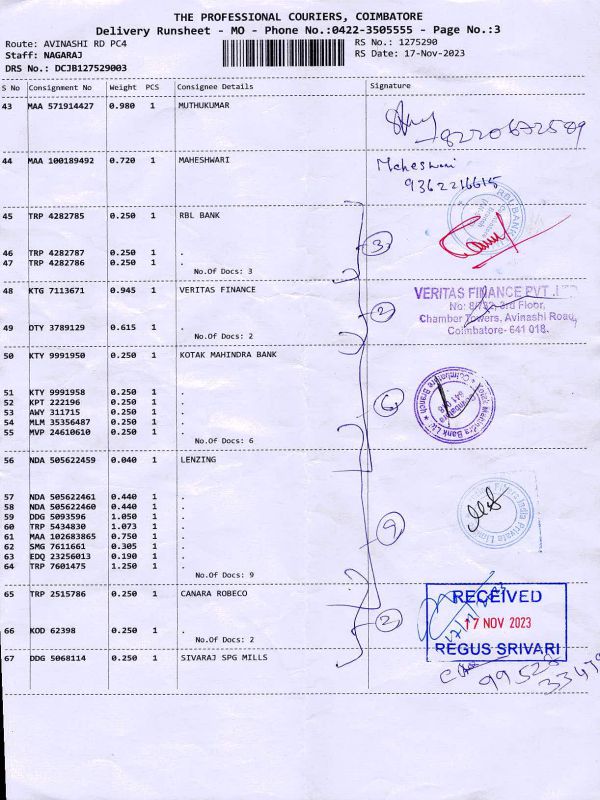 THE PROFESSIONAL COURIERS, COIMBATORE
Delivery Runsheet - MO - Phone No.:0422-3505555 - Page No.:3
Route: AVINASHI RD PC4 RS No.: 1275290
Staff: NAGARAJ RS Date: 17-Nov-2023
DRS No.: DCJB127529003
S No Consignment No Weight PCS Consignee Details Signature
43 MAA 571914427 0.980 1 MUTHUKUMAR
8220672589
44 MAA 100189492 0.720 1 MAHESHWARI Maheswari
9362216615
45 TRP 4282785 0.250 1 RBL BANK RBL BANK
46 TRP 4282787 0.250 1 . 3
47 TRP 4282786 0.250 1 .
No.Of Docs: 3
48 KTG 7113671 0.945 1 VERITAS FINANCE VERITAS FINANCE PVT .LTD
No: 8/732, 3rd Floor,
2
Chamber Towers, Avinashi Road,
49 DTY 3789129 0.615 1 . Coimbatore- 641 018.
No.Of Docs: 2
50 KTY 9991950 0.250 1 KOTAK MAHINDRA BANK
51 KTY 9991958 0.250 1 .
52 KPT 222196 0.250 1 . 6
53 AWY 311715 0.250 1 . Coimbatore
54 MLM 35356487 0.250 1 . 641 018
55 MVP 24610610 0.250 1 .
No.Of Docs: 6
56 NDA 505622459 0.040 1 LENZING
57 NDA 505622461 0.440 1 .
58 NDA 505622460 0.440 1 .
59 DDG 5093596 1.050 1 . Fibers India Private Limited
60 TRP 5434830 1.073 1 . 9
61 MAA 102683865 0.750 1 .
62 SMG 7611661 0.305 1 .
63 EDQ 23256013 0.190 1 .
64 TRP 7601475 1.250 1 .
No.Of Docs: 9
65 TRP 2515786 0.250 1 CANARA ROBECO RECEIVED
2 17 NOV 2023
66 KOD 62398 0.250 1 .
No.Of Docs: 2 REGUS SRIVARI
67 DDG 5068114 0.250 1 SIVARAJ SPG MILLS